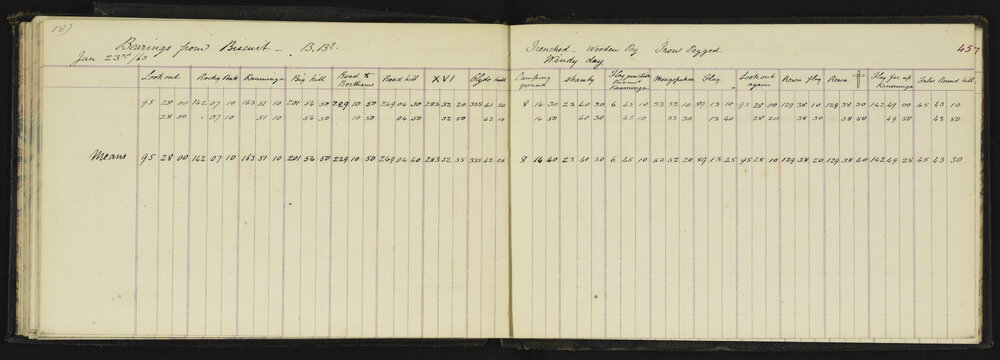 18)
Bearings from Biscuit - B.Bd. Trenched - Wooden Peg Iron Pegged 457
Jan 23rd /65 Windy day
Look out Rocky Peak Kanninga Big hill Road to Road hill XVI Clyde hill Camping Shanty Flag junction Flag Look out Rewa flag Rewa Flag far up False Round hill
ground again
95 28 00 142 07 10 163 51 10 201 54 50 229 10 50 249 04 30 283 52 20 355 41 50 8 14 30 23 40 30 6 45 10 53 32 10 89 13 10 95 28 00 129 38 10 129 38 30 142 49 00 45 43 10
28 00 07 10 51 10 54 50 10 50 04 50 52 50 42 10 14 50 40 30 45 10 32 30 13 40 28 20 38 30 38 50 49 50 43 50
Means 95 28 00 142 07 10 163 51 10 201 54 50 229 10 50 249 04 40 283 52 35 355 42 00 8 14 40 23 40 30 6 45 10 53 32 20 89 13 25 95 28 10 129 38 20 129 38 40 142 49 25 45 43 30